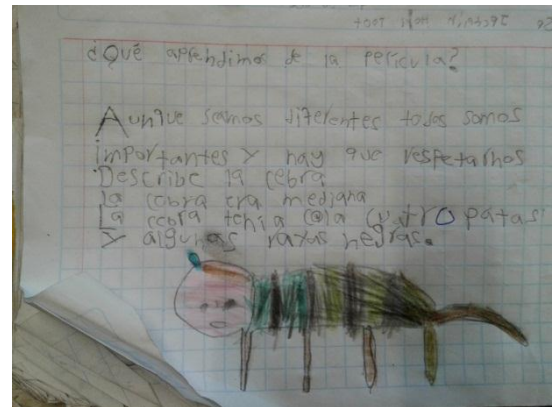 ¿Qué aprendimos de la película?
Aunque seamos diferentes todos somos
importantes y hay que respetarnos
Describe la cebra
La cebra era mediana
La cebra tenía cola cuatro patas
y algunas rayas negras.